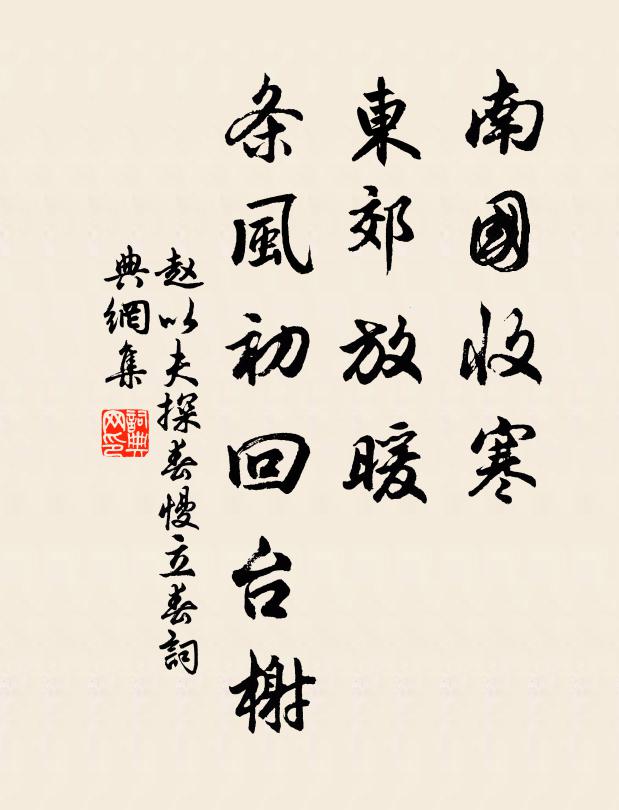 南國收寒
東郊放暖
条風初回台榭
赵以夫探春慢立春詞
典網集
詞典
网印